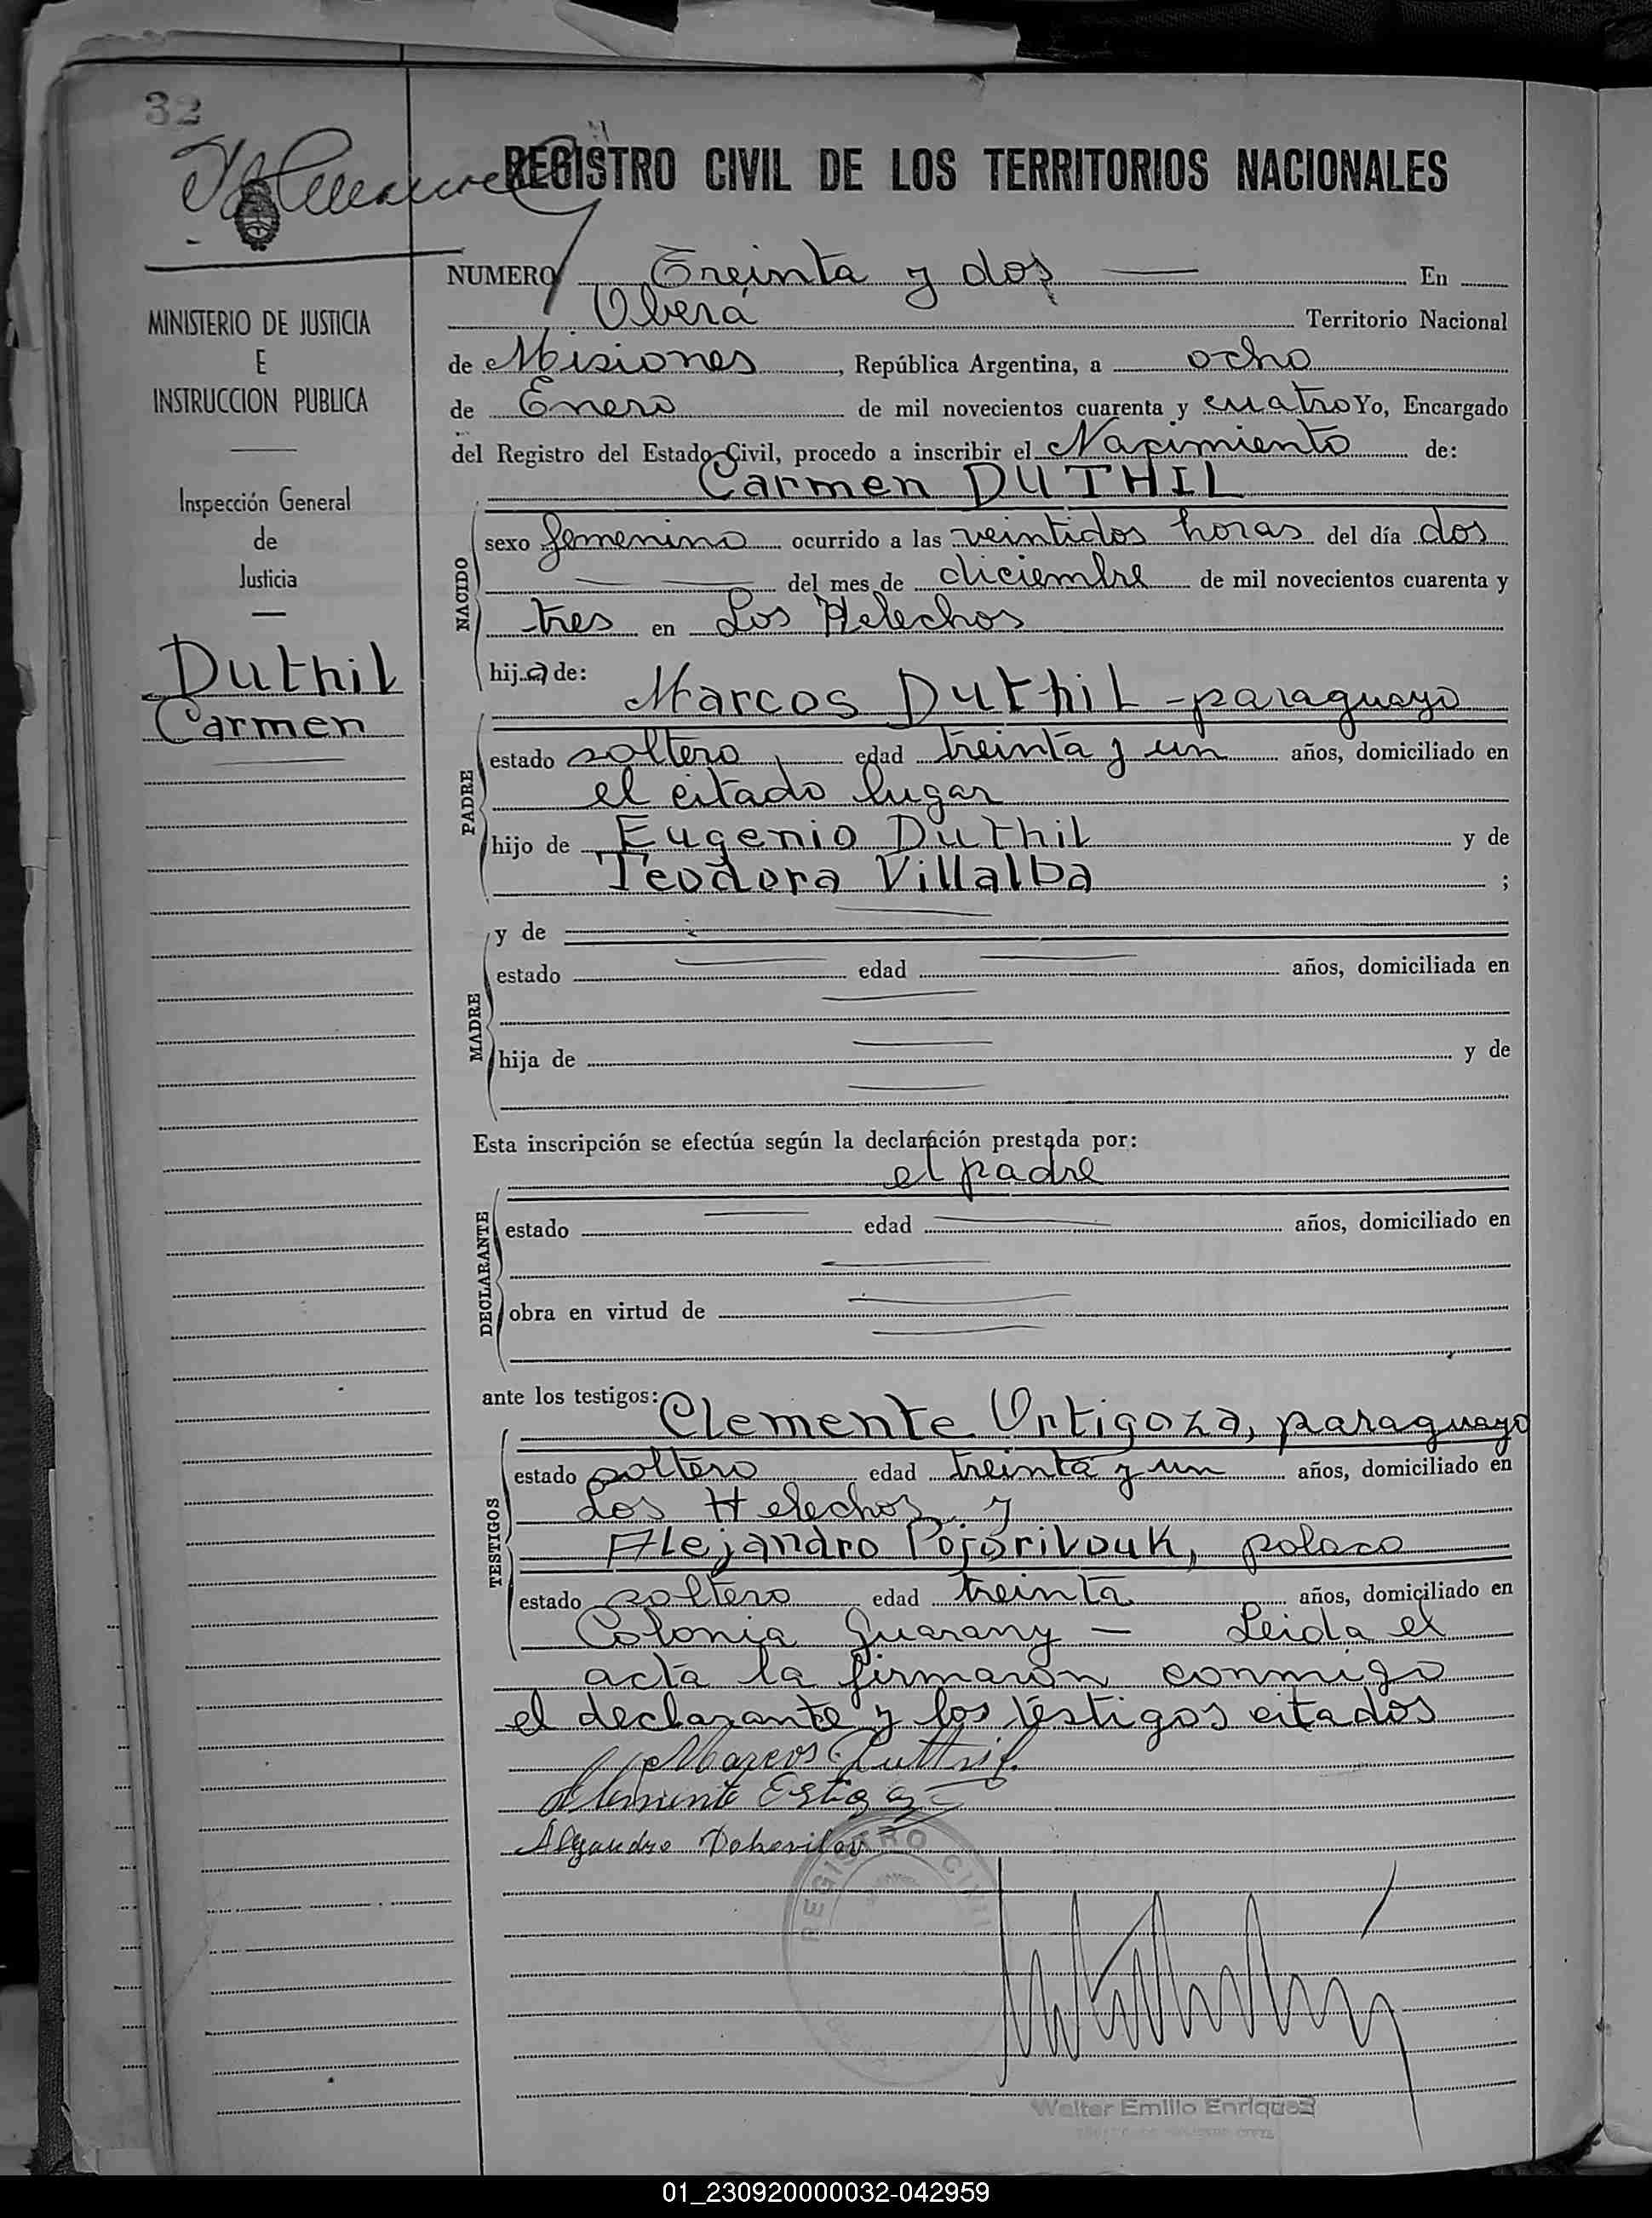 32
REGISTRO CIVIL DE LOS TERRITORIOS NACIONALES
NUMERO Treinta y dos En
Oberá Territorio Nacional
de Misiones, República Argentina, a ocho
de Enero de mil novecientos cuarenta y cuatro Yo, Encargado
del Registro del Estado Civil, procedo a inscribir el Nacimiento de:
Carmen DUTHIL
NACIDO
sexo femenino ocurrido a las veintidos horas del día dos
del mes de diciembre de mil novecientos cuarenta y
tres en Los Helechos
hija de:
MINISTERIO DE JUSTICIA
E
INSTRUCCION PUBLICA
Inspección General
de
Justicia
Duthil
Carmen
Marcos Duthil - paraguayo
PADRE
estado soltero, edad treinta y un años, domiciliado en
el citado lugar
hijo de Eugenio Duthil y de
Teodora Villalba ;
MADRE
y de
estado edad años, domiciliada en
hija de y de
Esta inscripción se efectúa según la declaración prestada por:
el padre
DECLARANTE
estado edad años, domiciliado en
obra en virtud de
ante los testigos:
Clemente Ortigoza, paraguayo
TESTIGOS
estado soltero edad treinta y un años, domiciliado en
Los Helechos y
Alejandro Pojorilouk, polaco
estado soltero edad treinta años, domiciliado en
Colonia Guarany - Leida el
acta la firmaron conmigo
el declarante y los testigos citados
Marcos Duthil
REGISTRO CIVIL
Walter Emilio Enriquez
01_230920000032-042959